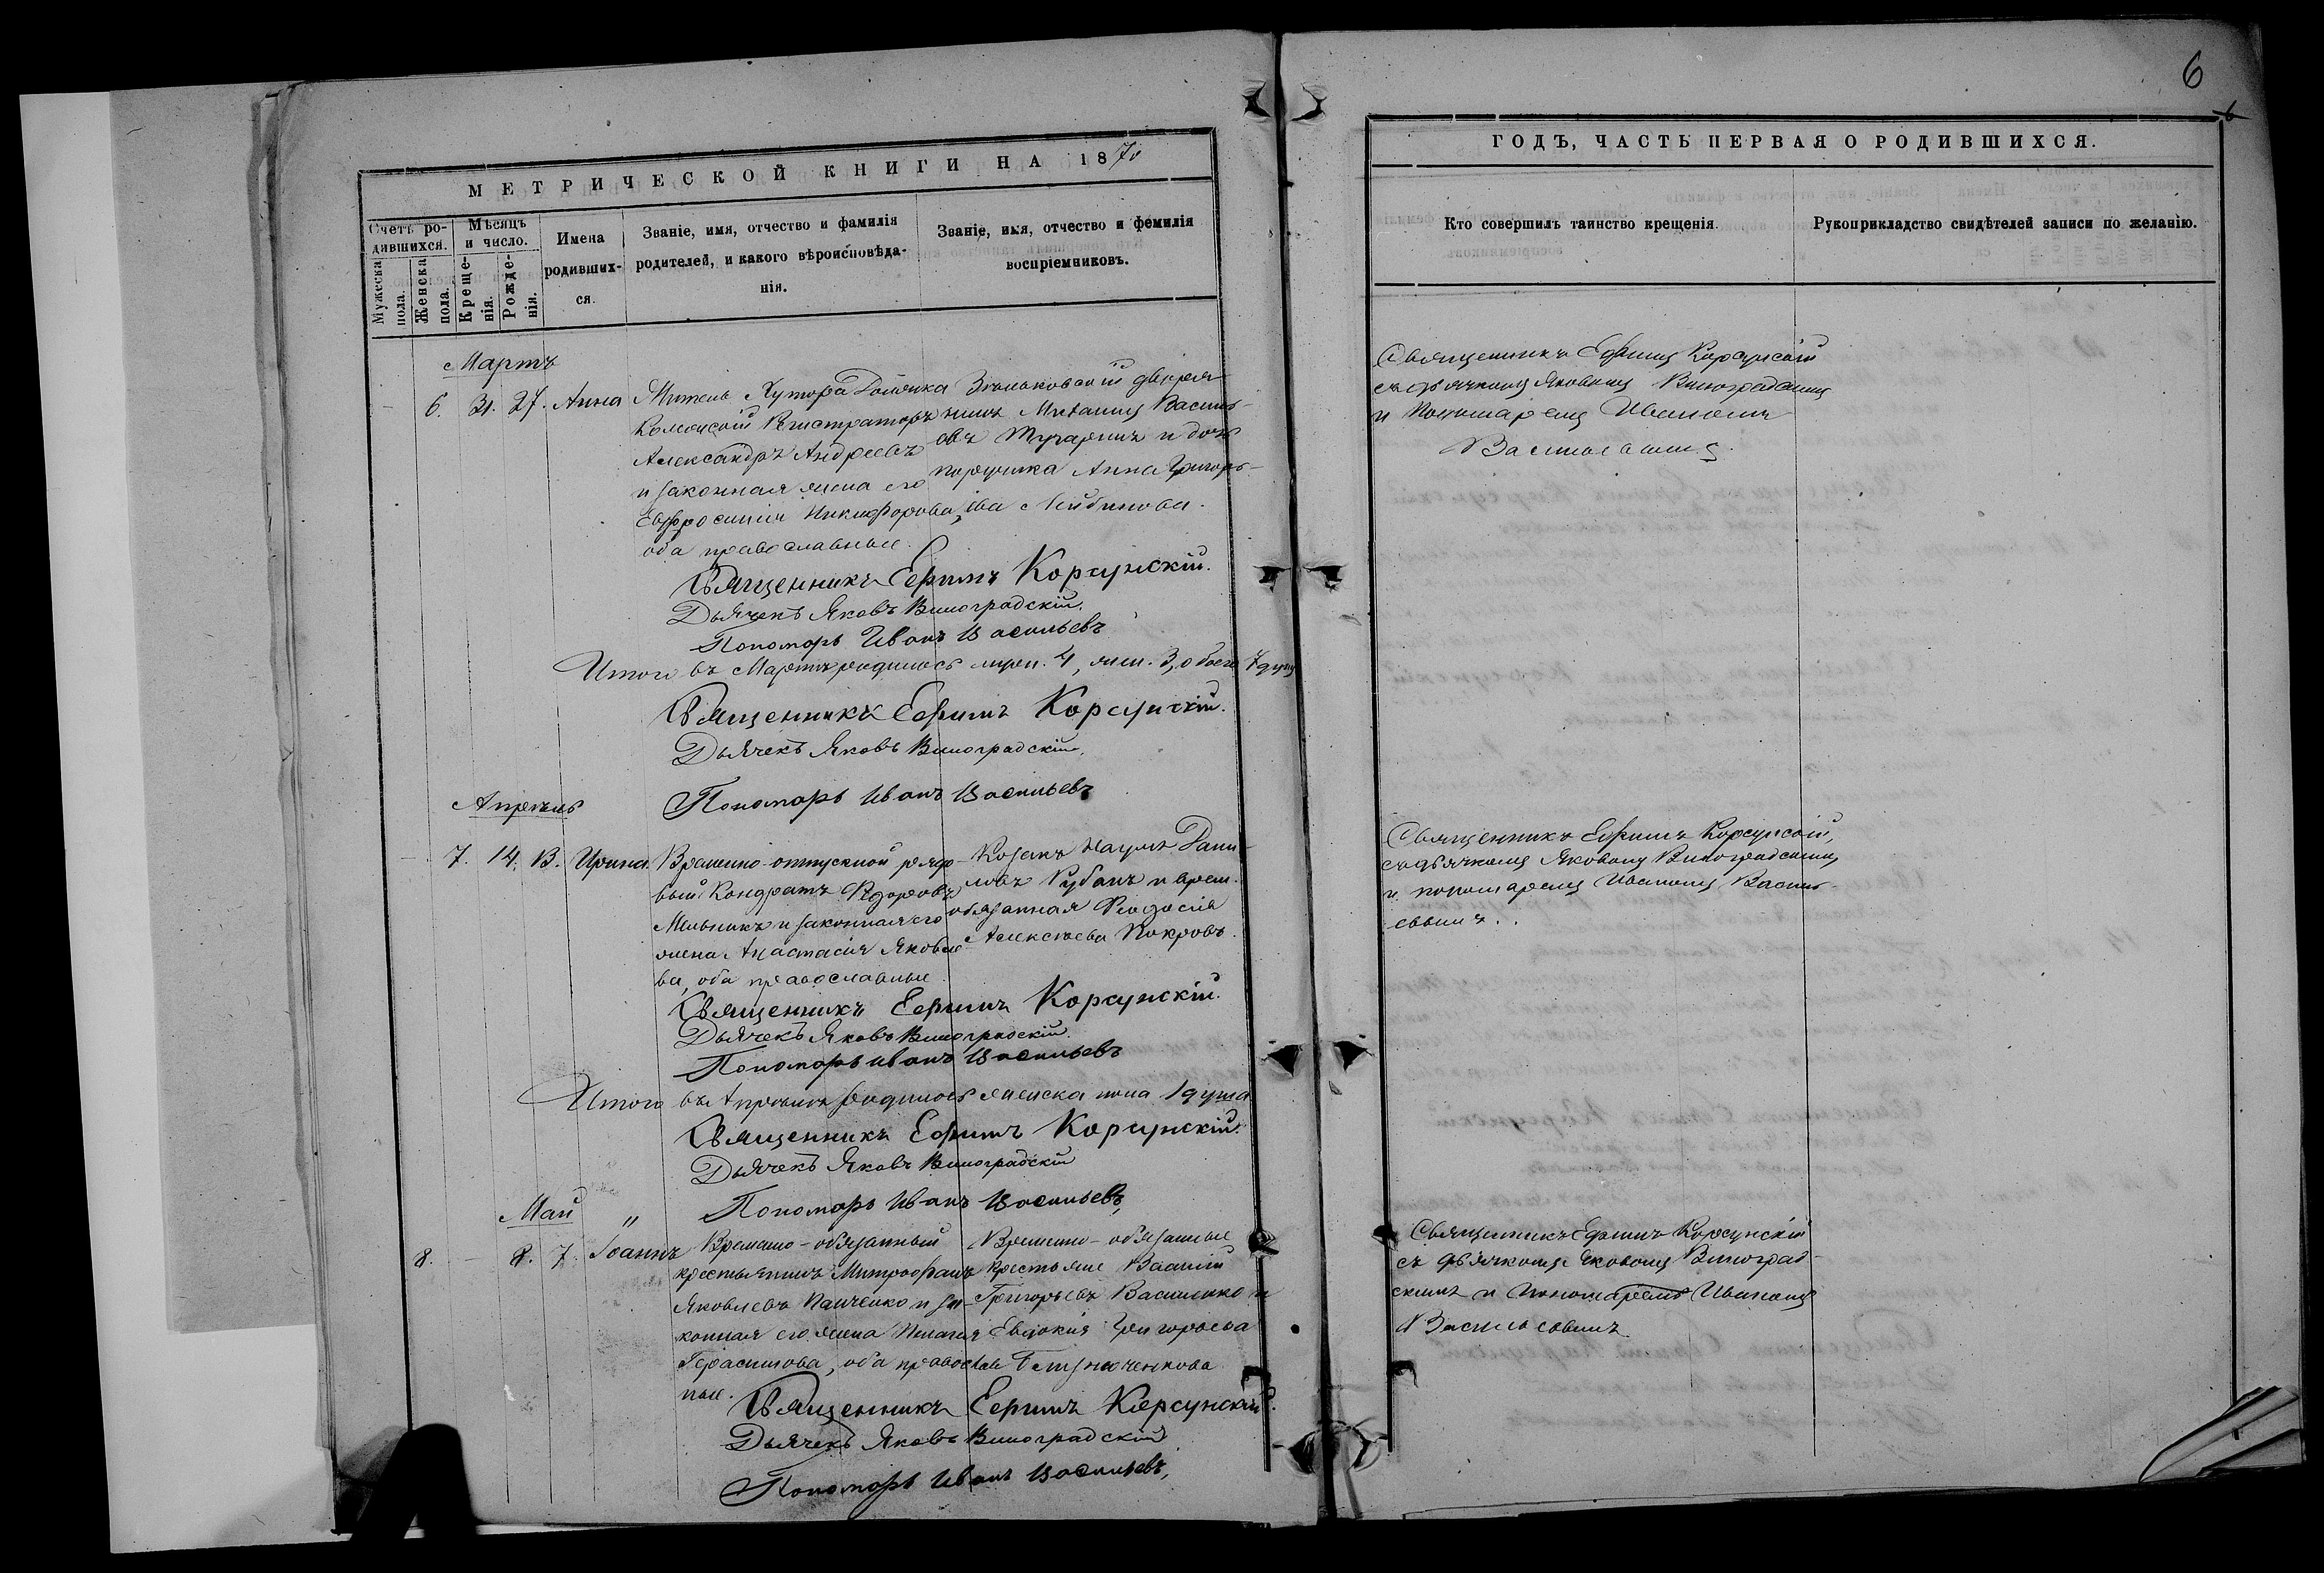 6
МЕТРИЧЕСКОЙ КНИГИ НА 1870
ГОДЪ, ЧАСТЬ ПЕРВАЯ О РОДИВШИХСЯ.
Счетъ ро-
дившихся.
Мужеска
пола.
Женска
пола.
Мѣсяцъ
и число.
Креще-
нія.
Рожде-
нія.
Имена
родивших-
ся.
Званіе, имя, отчество и фамилія
родителей, и какого вѣроисповѣда-
нія.
Званіе, имя, отчество и фемилія
воспріемниковъ.
Кто совершилъ таинство крещенія.
Рукоприкладство свидѣтелей записи по желанію.
Мартъ
6. 31. 27. Анна
Житель Хутора
Регистраторъ
Александръ Андреевъ
и законная жена его
Евфросинія Никифорова,
оба православные.
Зѣньковскій дворя-
нинъ Михаилъ Василь-
евъ и дочь
поручика Анна Григорь-
ева
Священникъ Ефимъ Корсунскій
съ дьячкомъ Яковомъ Виноградскимъ
и Пономаремъ Иваномъ
Васильевымъ.
Священникъ Ефимъ Корсунскій.
Дьячекъ Яковъ Виноградскій.
Пономарь Иванъ Васильевъ
Итого въ Мартѣ родилось муж. 4, жен. 3, обоего 7 душъ
Священникъ Ефимъ Корсунскій.
Дьячекъ Яковъ Виноградскій.
Пономарь Иванъ Васильевъ
Апрѣль
7. 14. 13. Ирина.
Времено-отпускной рядо-
вый Кондратъ Ѳедоровъ
Мельникъ и законная его
жена Анастасія Яковле-
ва, оба православные
Козакъ Наумъ Дани-
ловъ Рубанъ и врем.
обязанная Ѳеодосія
Алексѣева Покровъ.
Священникъ Ефимъ Корсунскій,
съ дьячкомъ Яковомъ Виноградскимъ
и пономаремъ Иваномъ Василь-
евымъ.
Священникъ Ефимъ Корсунскій.
Дьячекъ Яковъ Виноградскій.
Пономарь Иванъ Васильевъ
Итого въ Апрѣлѣ родилось женска пола 1 душа
Священникъ Ефимъ Корсунскій.
Дьячекъ Яковъ Виноградскій
Пономарь Иванъ Васильевъ,
Май "
8. - 8. 7. Іоаннъ
Времено-обязанный
крестьянинъ Митрофанъ
Яковлевъ Панченко и за-
конная его жена Пелагія
Герасимова, оба православ-
ные.
Времено-обязанные
крестьяне Василій
Григорьевъ Василенко и
Евдокія Григорьева
Священникъ Ефимъ Корсунскій
съ дьячкомъ Яковомъ Виноград-
скимъ и пономаремъ Иваномъ
Васильевымъ
Священникъ Ефимъ Корсунскій.
Дьячекъ Яковъ Виноградскій
Пономарь Иванъ Васильевъ,